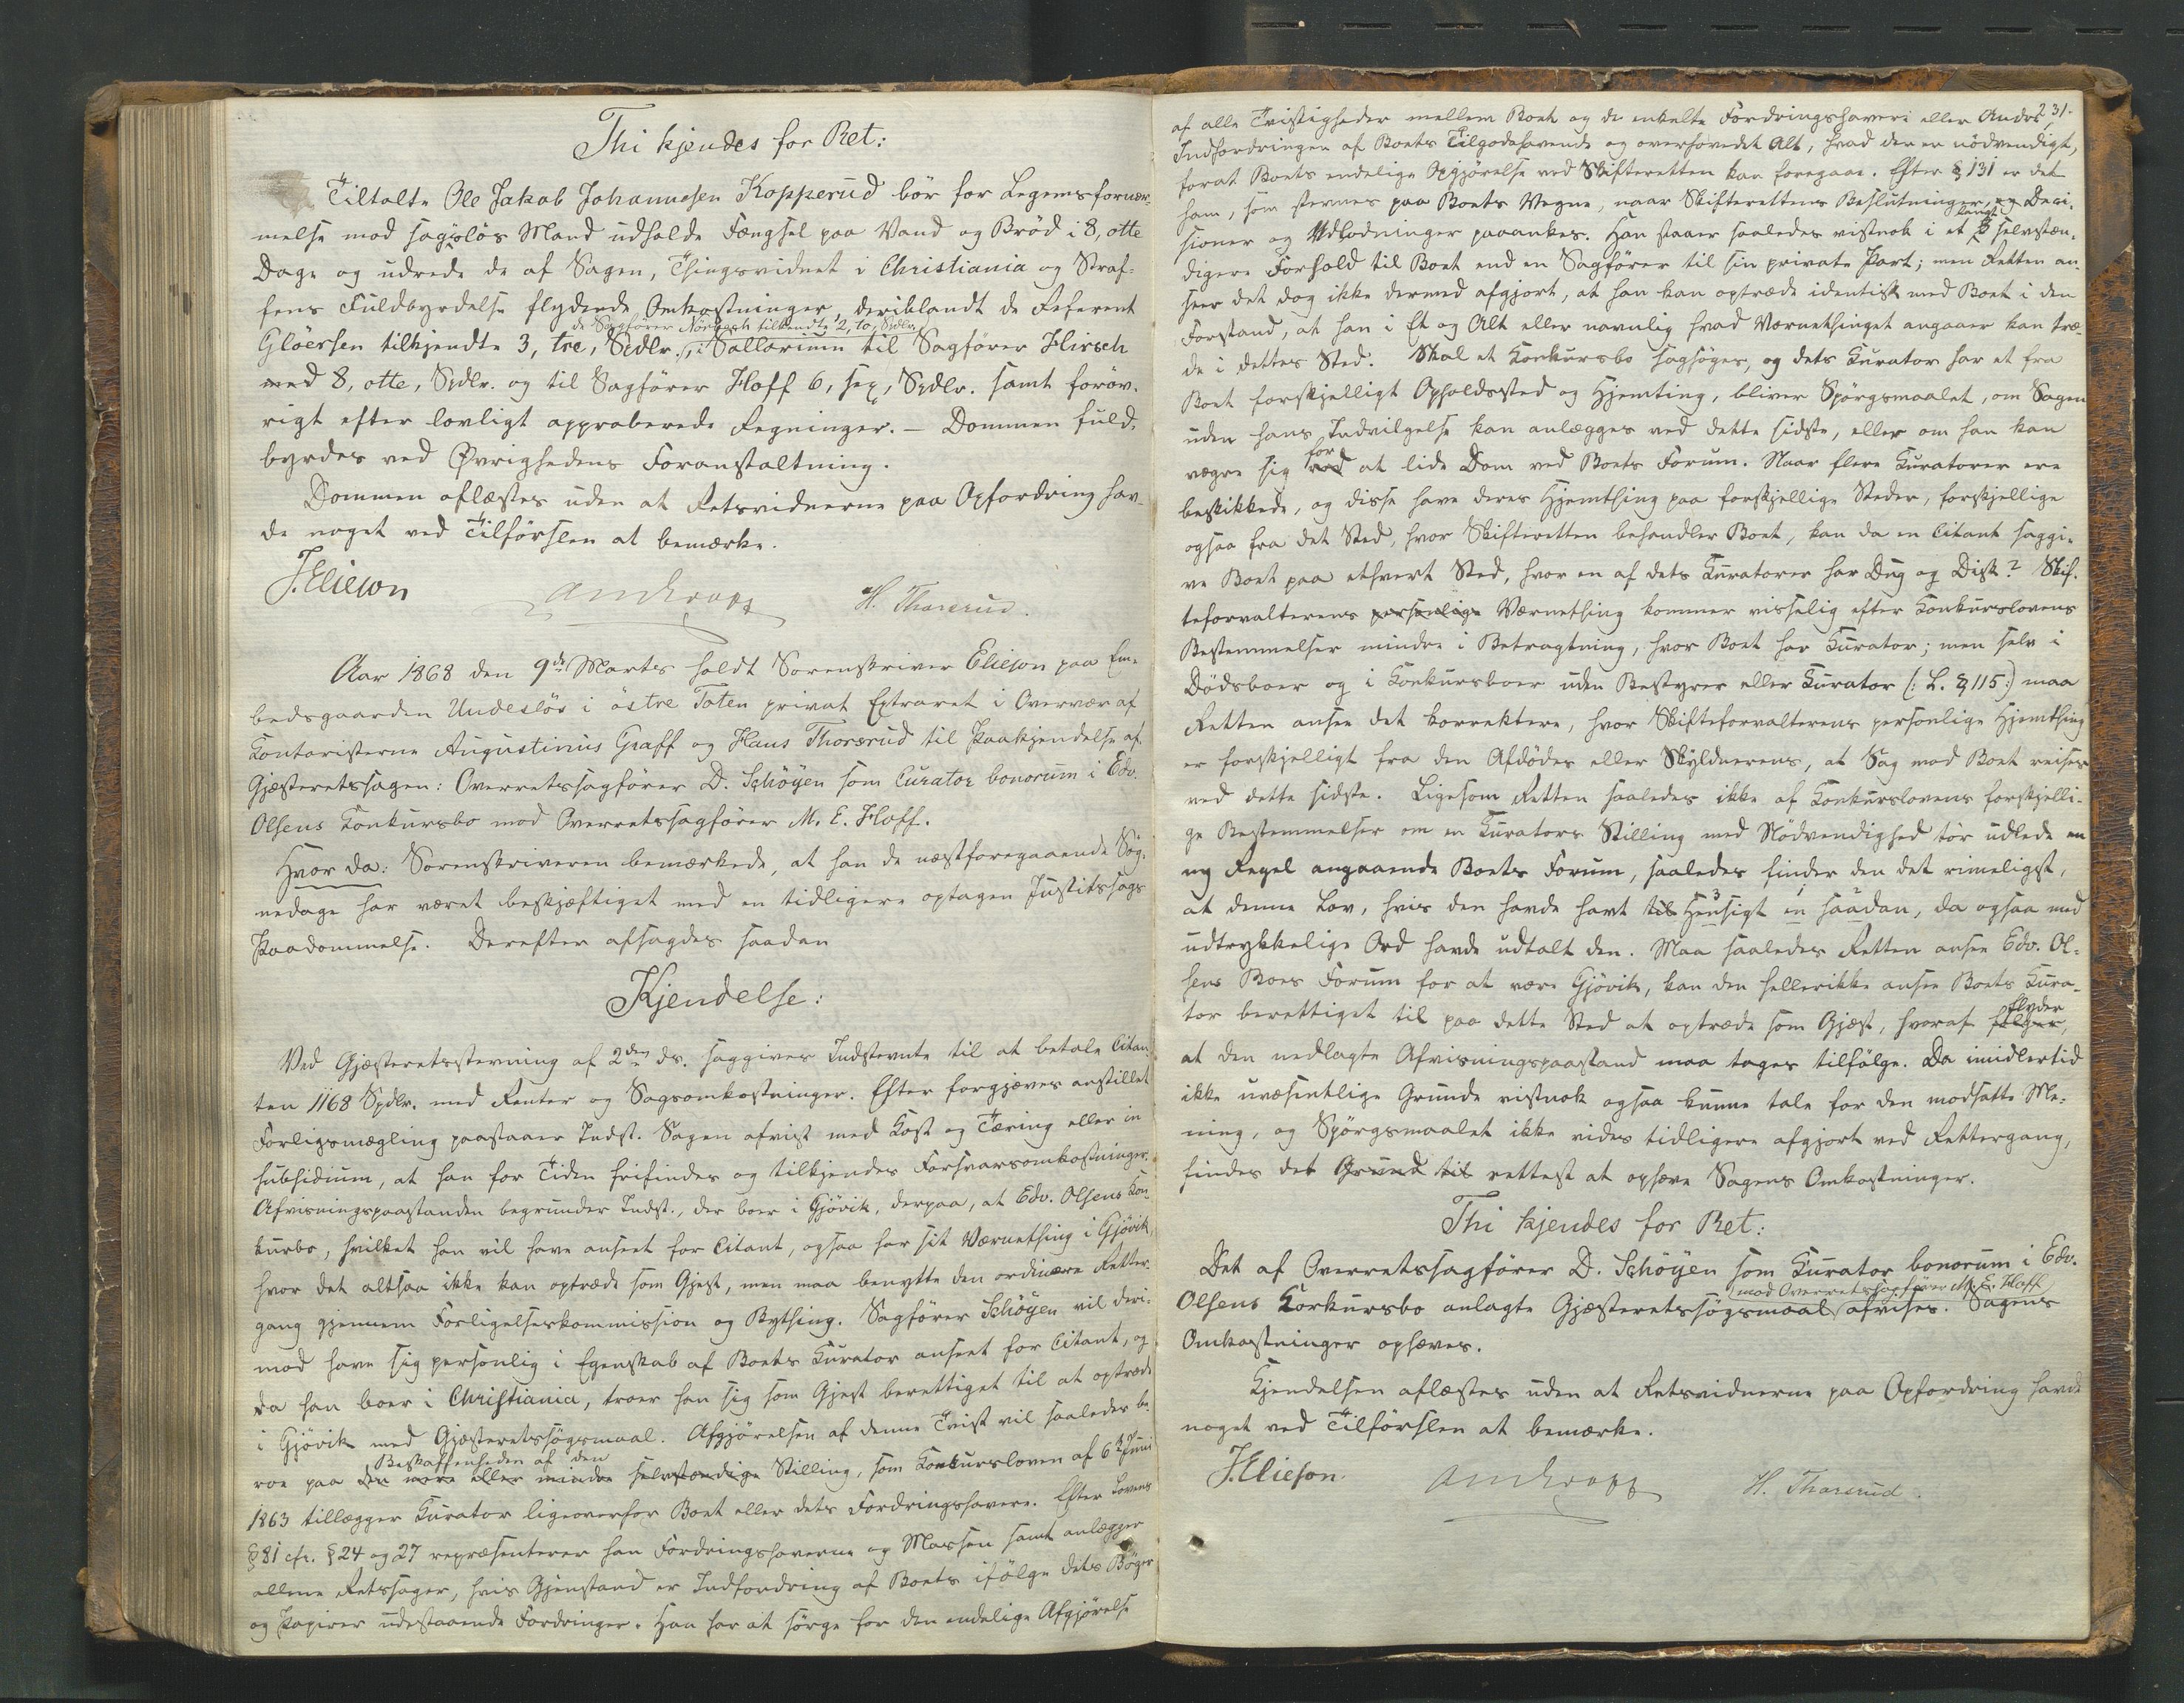 Thi kjendes for Ret:
Tiltalte Ole Jakob Johannesen Kopperud bör for Legemsfornær-
melse mod sagislös Mand udholde Fængsel paa Vand og Bröd i 8, otte
Dage og udrede de af Sagen, Thingsvidnet i Christiania og Straf-
fens Fuldbyrdelse flydende Omkostninger, deriblandt de Referent
de Sagfører Nörbech tilkendte 2, to, Spdlr.
Gløersen tilkjendte 3, tre, Spdlr., i Sallarium til Sagförer Hirsch
med 8, otte, Spdlr. og til Sagförer Hoff 6, sex, Spdlr. samt foröv-
rigt efter lovligt approberede Regninger. – Dommen fuld-
byrdes ved Øvrighedens Foranstaltning.
Dommen oplæstes uden at Retsvidnerne paa Opfordring hav-
de noget ved Tilförslen at bemærke.
J. Elieson
H. Thorsrud.
Aar 1868 den 9de Marts holdt Sorenskriver Elieson paa Em-
bedsgaarden Undeslös i östre Toten privat Extraret i Overvær af
Kontoristerne Augustinus Graff og Hans Thorsrud til Paakjendelse af
Gjæsteretssagen: Overretssagförer D. Schöyen som Curator bonorum i Edv.
Olsens Konkursbo mod Overretssagförer M. E. Hoff.
Hvor da: Sorenskriveren bemærkede, at han de næstforegaaende Sög-
nedage har været beskjæftiget med en tidligere optagen Justitssags
Paadømmelse. Derefter afsagdes saadan
Kjendelse:
Ved Gjæsteretsstevning af 2den ds. saggives Indstevnte til at betale Citan-
ten 1168 Spdlr. med Renter og Sagsomkostninger. Efter forgjæves anstillet
Forligsmægling paastaaer Indst. Sagen afvist med Kost og Tæring eller in
subsidium, at han for Tiden frifindes og tilkjendes Forsvarsomkostninger.
Afvisningspaastanden begrunder Indst., der boer i Gjövik, derpaa, at Edv. Olsens Kon-
kursbo, hvilket han vil have anseet for Citant, ogsaa har sit Værnething i Gjövik,
hvor det altsaa ikke kan optræde som Gjest, men maa benytte den ordinære Retter-
gang gjennem Forligelseskommission og Bything. Sagförer Schöyen vil deri-
mod have sig personlig i Egenskab af Boets Kurator anseet for Citant, og
da han boer i Christiania, troer han sig som Gjest berettiget til at optræde
i Gjövik med Gjæsteretssögsmaal. Afgjörelsen af denne Tvist vil saaledes be-
Beskaffenheden af den
roe paa den mere eller mindre selvstændige Stilling, som Konkursloven af 6te Juni
1863 tillægger Kurator ligeoverfor Boet eller dets Fordringshavere. Efter Lovens
§ 81 cfr. § 24 og 27 repræsenterer han Fordringshaverne og Massen samt anlægger
allene Retssager, hvis Gjenstand er Indfordring af Boets ifölge dets Böger
og Papirer udestaaende Fordringer. Han har at sörge for den endelige Afgjörelse
231.
af alle Tvistigheder mellem Boet og de enkelte Fordringshavere eller Andre,
Indfordringen af Boets Tilgodehavende og overhovedet Alt, hvad der er nödvendigt,
forat Boets endelige Opgjörelse ved Skifteretten kan foregaae. Efter § 131 er det
ham, som stevnes paa Boets Vegne, naar Skifterettens Beslutninger, og Deci-
langt
sioner og Udlodninger paaankes. Han staaer saaledes vistnok i et selvstæn-
digere Forhold til Boet end en Sagförer til sin private Part; men Retten an-
seer det dog ikke dermed afgjort, at han kan optræde identisk med Boet i den
Forstand, at han i Et og Alt eller navnlig hvad Værnethinget angaaer kan træ-
de i dettes Sted. Skal et Konkursbo sagsöges, og dets Kurator har et fra
Boet forskjelligt Opholdssted og Hjemting, bliver Spörgsmaalet, om Sagen
uden hans Indvilgelse kan anlægges ved dette sidste, eller om han kan
for
vægre sig ved at lide Dom ved Boets Forum. Naar flere Kuratorer ere
beskikkede, og disse have deres Hjemthing paa forskjellige Steder, forskjellige
ogsaa fra det Sted, hvor Skifteretten behandler Boet, kan da en Citant saggi-
ve Boet paa ethvert Sted, hvor en af dets Kuratorer har Dug og Disk? Skif-
teforvalterens personlige Værnething kommer visselig efter Konkurslovens
Bestemmelser mindre i Betragtning, hvor Boet har Kurator; men selv i
Dödsboer og i Konkursboer uden Bestyrer eller Kurator (: L. § 115 :) maa
Retten ansee det korrektere, hvor Skifteforvalterens personlige Hjemthing
er forskjelligt fra den Afdödes eller Skyldnerens, at Sag mod Boet reises
ved dette sidste. Ligesom Retten saaledes ikke af Konkurslovens forskjelli-
ge Bestemmelser om en Kurators Stilling med Nödvendighed tör udlede en
ny Regel angaaende Boets Forum, saaledes finder den det rimeligst,
at denne Lov, hvis den havde havt til Hensigt en saadan, da ogsaa med
udtrykkelige Ord havde udtalt den. Maa saaledes Retten ansee Edv. Ol-
sens Boes Forum for at være Gjövik, kan den hellerikke ansee Boets Kura-
flyder
tor berettiget til paa dette Sted at optræde som Gjæst, hvoraf fölger,
at den nedlagte Afvisningspaastand maa tages tilfölge. Da imidlertid
ikke uvæsentlige Grunde vistnok ogsaa kunne tale for den modsatte Me-
ning, og Spörgsmaalet ikke vides tidligere afgjort ved Rettergang,
findes det Grund til rettest at ophæve Sagens Omkostninger.
Thi kjendes for Ret:
Det af Overretssagförer D. Schöyen som Kurator bonorum i Edv.
mod Overretssagförer M. E. Hoff
Olsens Konkursbo anlagte Gjæsteretssögsmaal afvises. Sagens
Omkostninger ophæves.
Kjendelsen oplæstes uden at Retsvidnerne paa Opfordring havde
noget ved Tilförslen at bemærke.
J. Elieson.
H. Thorsrud.